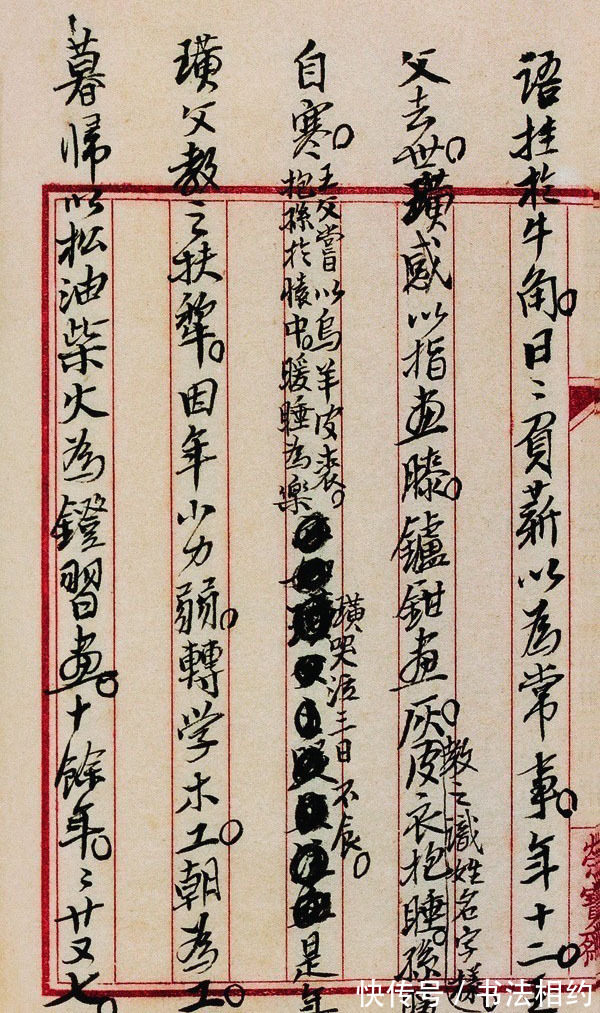 語挂於牛角。日〻負薪以為常事。年十二。王
父去世。璜感以指画膝。鑪鉗画灰。皮衣抱睡。孫
教之識姓名字樣。
自寒。
王父嘗以烏羊皮裘。
抱孫於懷中。暖睡為樂
璜哭泣三日不食。
是年
璜父教之扶犂。因年小力弱。轉学木工。朝為工。
暮歸以松油柴火為鐙習画。十餘年。〻廿又七。
榮寶齋
快传号 / 书法相约